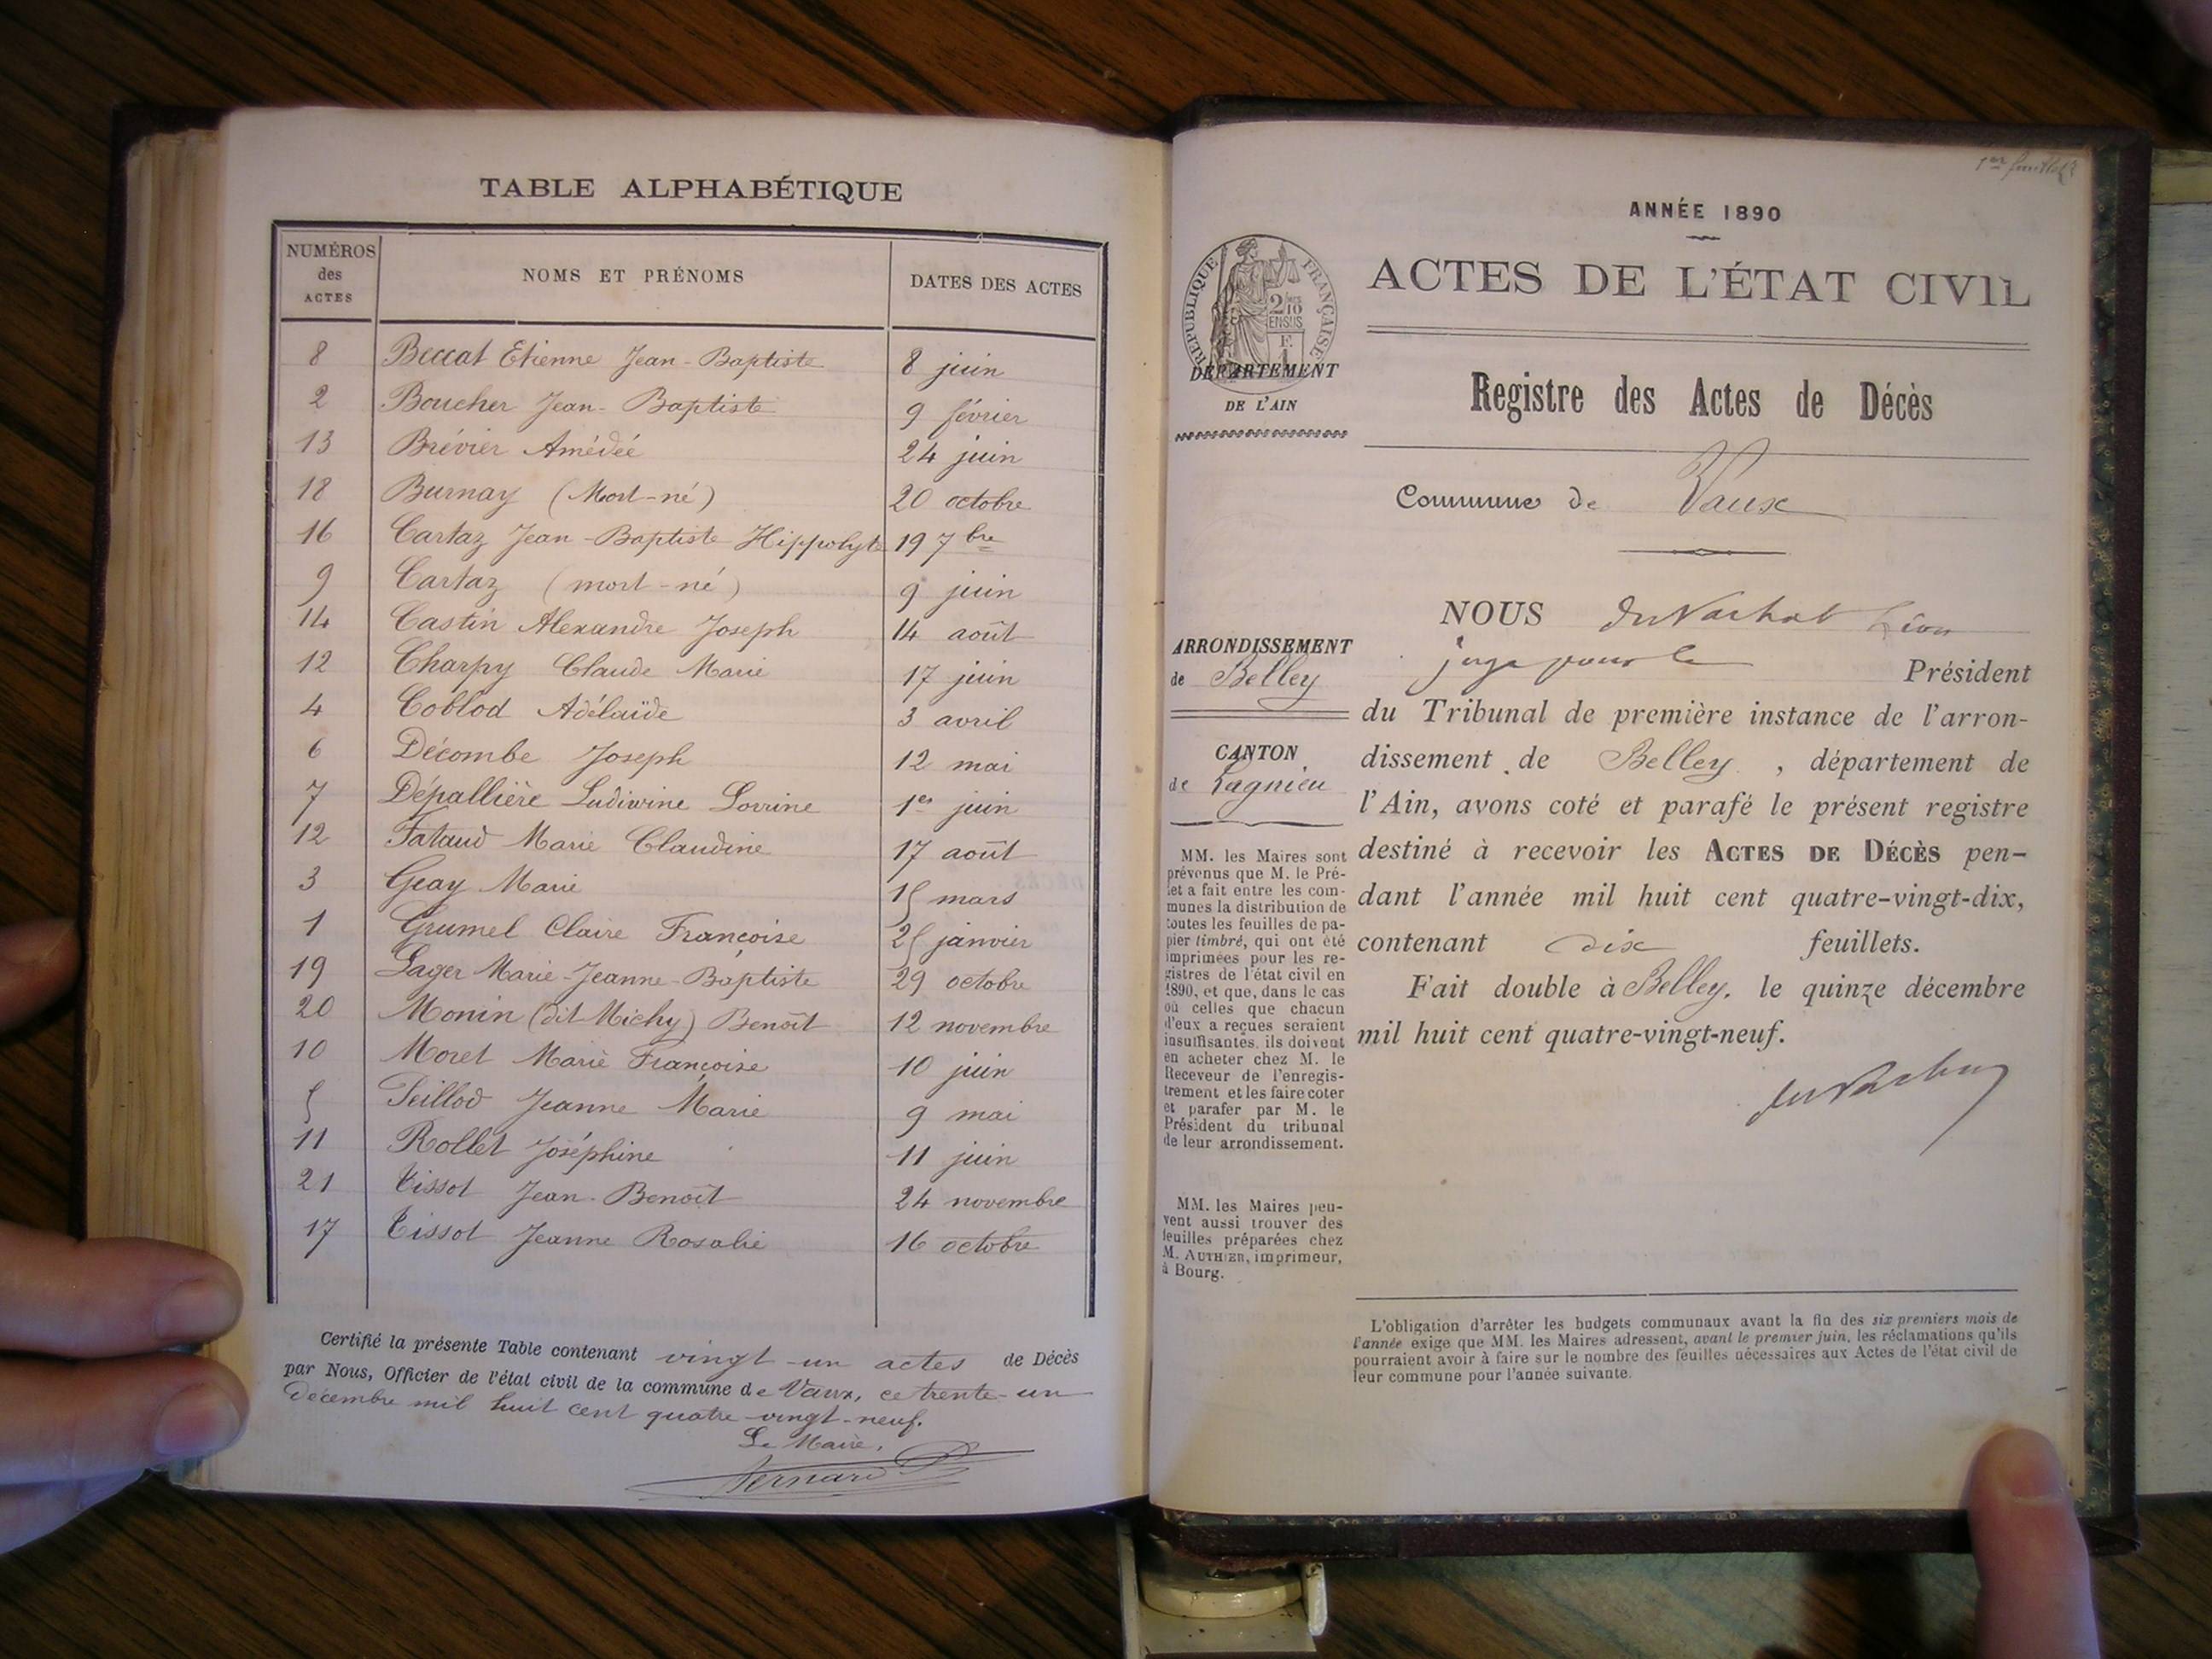 TABLE ALPHABÉTIQUE
NUMÉROS des ACTES
NOMS ET PRÉNOMS
DATES DES ACTES
8 Beccat Etienne Jean-Baptiste 8 juin
2 Boucher Jean-Baptiste 9 février
13 Brévier Amédéé 24 juin
18 Burnay (Mort-né) 20 octobre
16 Cartaz Jean-Baptiste Hippolyte 19 7bre
9 Cartaz (mort-né) 9 juin
14 Castin Alexandre Joseph 14 août
12 Charpy Claude Marie 17 juin
4 Coblod Adélaïde 3 avril
6 Décombe Joseph 12 mai
7 Dépallière Ludiwine Lovrine 1er juin
12 Fataud Marie Claudine 17 août
3 Geay Marie 15 mars
1 Grumel Claire Françoise 25 janvier
19 Lager Marie-Jeanne-Baptiste 29 octobre
20 Monin (dit Michy) Benoît 12 novembre
10 Moret Marie Françoise 10 juin
5 Peillod Jeanne Marie 9 mai
11 Rollet Joséphine 11 juin
21 Tissot Jean-Benoît 24 novembre
17 Tissot Jeanne Rosalie 16 octobre
Certifié la présente Table contenant vingt-un actes de Décès
par Nous, Officier de l'état civil de la commune de Vaux, ce trente-un
décembre mil huit cent quatre-vingt-neuf.
Le Maire,
1er feuillet
ANNÉE 1890
ACTES DE L'ÉTAT CIVIL
RÉPUBLIQUE FRANÇAISE
2/10 EN SUS
DÉPARTEMENT
DE L'AIN
Registre des Actes de Décès
Commune de Vaux
ARRONDISSEMENT
de Belley
CANTON
de Lagnieu
MM. les Maires sont
prévenus que M. le Pré-
fet a fait entre les com-
munes la distribution de
toutes les feuilles de pa-
pier timbré, qui ont été
imprimées pour les re-
gistres de l'état civil en
1890, et que, dans le cas
où celles que chacun
d'eux a reçues seraient
insuffisantes, ils doivent
en acheter chez M. le
Receveur de l'enregis-
trement et les faire coter
et parafer par M. le
Président du tribunal
de leur arrondissement.
MM. les Maires peu-
vent aussi trouver des
feuilles préparées chez
M. AUTHIER, imprimeur,
à Bourg.
NOUS du Vachat Léon
juge pour le Président
du Tribunal de première instance de l'arron-
dissement de Belley, département de
l'Ain, avons coté et parafé le présent registre
destiné à recevoir les ACTES DE DÉCÈS pen-
dant l'année mil huit cent quatre-vingt-dix,
contenant dix feuillets.
Fait double à Belley, le quinze décembre
mil huit cent quatre-vingt-neuf.
du Vachat
L'obligation d'arrêter les budgets communaux avant la fin des six premiers mois de
l'année exige que MM. les Maires adressent, avant le premier juin, les réclamations qu'ils
pourraient avoir à faire sur le nombre des feuilles nécessaires aux Actes de l'état civil de
leur commune pour l'année suivante.